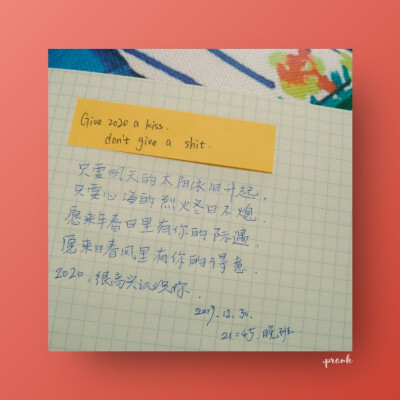 Give 2020 a kiss.
don't give a shit.
只要明天的太阳依旧升起，
只要心海的烈火冬日不熄，
愿来年春日里有你的际遇，
愿来日春风里有你的得意.
2020，很高兴认识你.
2019.12.30.
21:45.晚班.
.prank